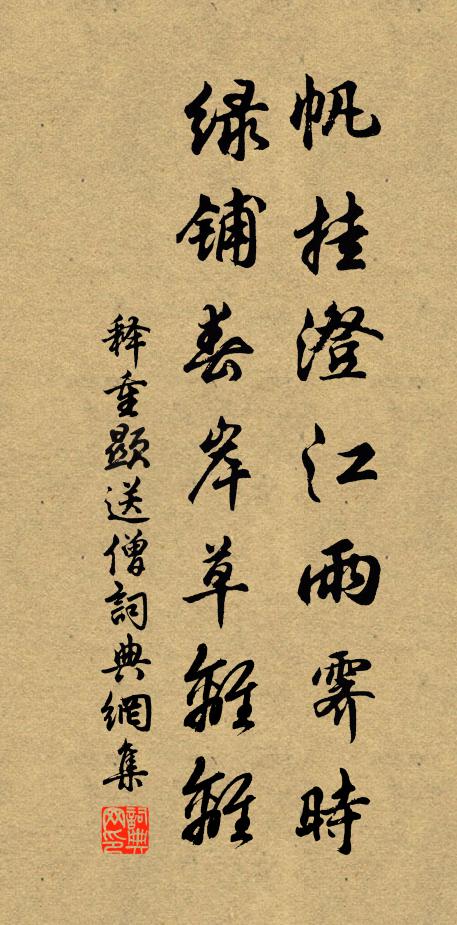 帆挂澄江雨霁時
绿铺春岸草離離
释重顯送僧詞典網集
詞典网印